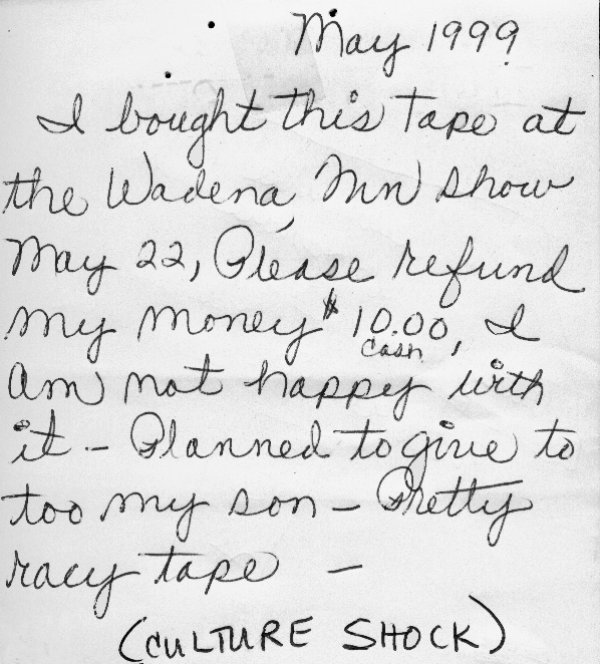 May 1999
I bought this tape at
the Wadena, Mn show
May 22, Please refund
my money $10.00, I
cash
am not happy with
it - Planned to give to
too my son - Pretty
racy tape -
(CULTURE SHOCK)